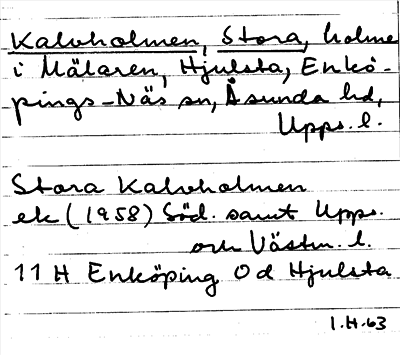 Kalvholmen, Stora, holme
i Mälaren, Hjulsta, Enkö-
pings-Näs sn, Åsunda hd,
Upps. l.
Stora Kalvholmen
ek (1958) Söd. samt Upps.
och Västm. l.
11 H Enköping 0 d Hjulsta
1.H.63